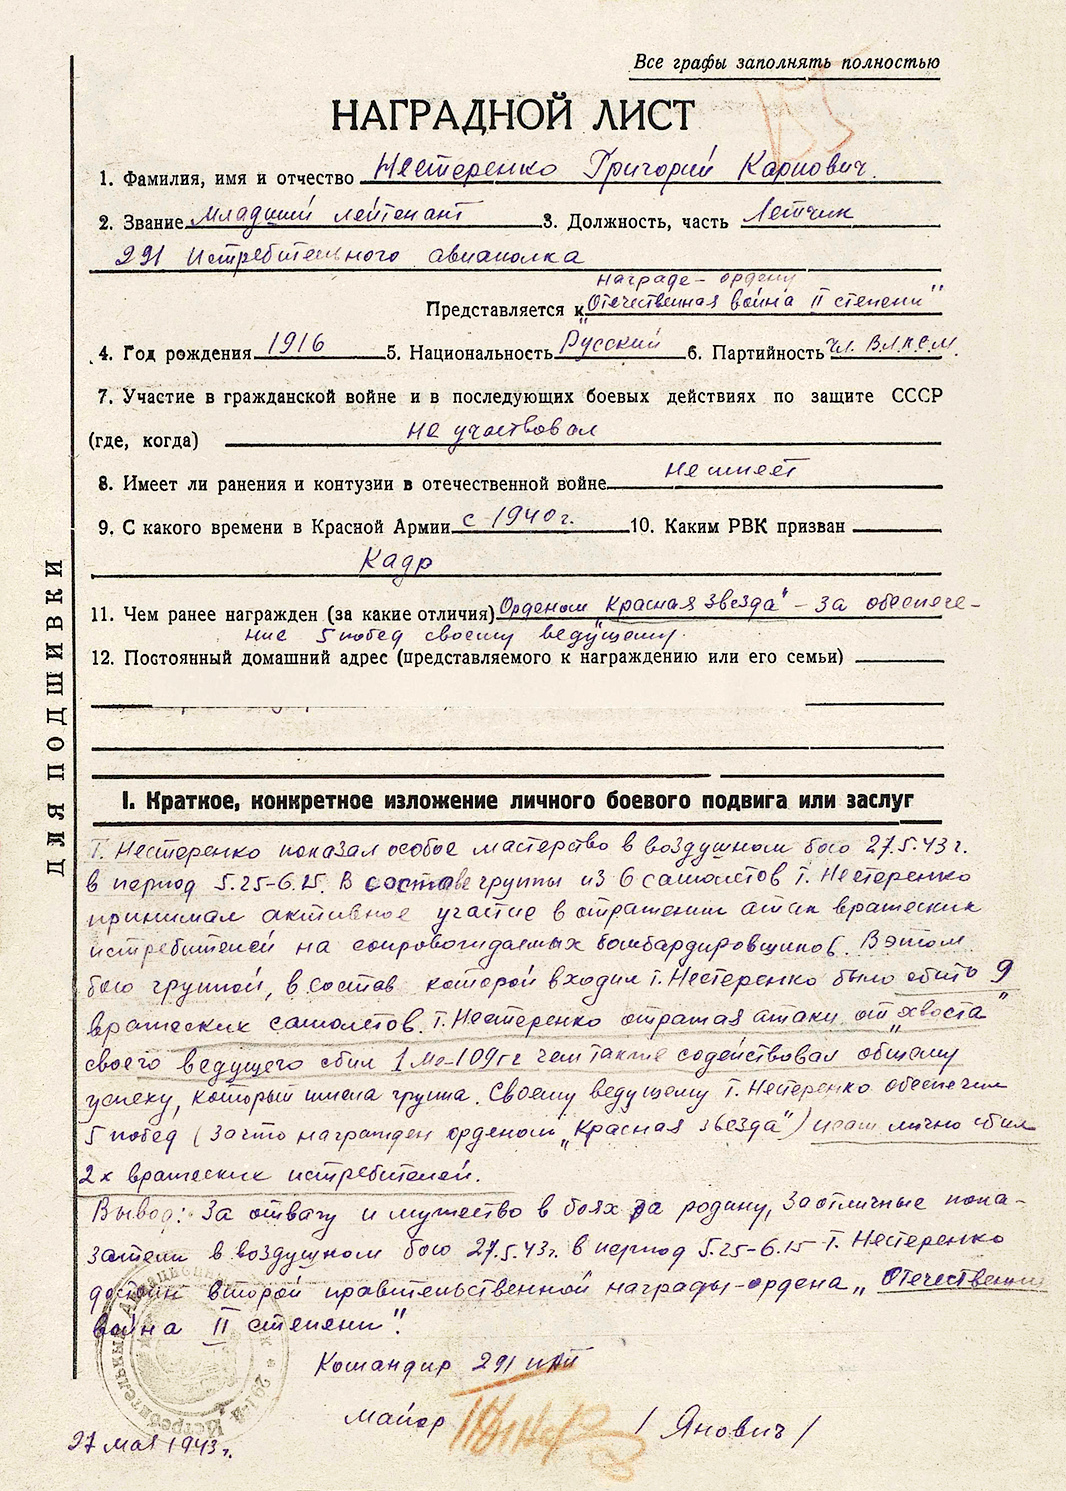 Все графы заполнять полностью
НАГРАДНОЙ ЛИСТ
1. Фамилия, имя и отчество Нестеренко Григорий Карпович.
2. Звание Младший лейтенант 3. Должность, часть Летчик
291 Истребительного авиаполка
награде - ордену
Представляется к „Отечественная война II степени"
4. Год рождения 1916 5. Национальность Русский 6. Партийность чл. ВЛКСМ.
7. Участие в гражданской войне и в последующих боевых действиях по защите СССР
(где, когда) не участвовал
8. Имеет ли ранения и контузии в отечественной войне не имеет
9. С какого времени в Красной Армии с 1940 г. 10. Каким РВК призван
Кадр
11. Чем ранее награжден (за какие отличия) Орденом „Красная звезда" - за обеспече-
ние 5 побед своему ведущему.
12. Постоянный домашний адрес (представляемого к награждению или его семьи)
ДЛЯ ПОДШИВКИ
I. Краткое, конкретное изложение личного боевого подвига или заслуг
Т. Нестеренко показал особое мастерство в воздушном бою 27.5.43 г.
в период 5.25-6.15. В составе группы из 6 самолетов т. Нестеренко
принимал активное участие в отражении атак вражеских
истребителей на сопровождаемых бомбардировщиков. В этом
бою группой, в состав которой входил т. Нестеренко было сбито 9
вражеских самолетов. Т. Нестеренко отражая атаки от „хвоста"
своего ведущего сбил 1 Ме-109г2 чем также содействовал общему
успеху, который имела группа. Своему ведущему т. Нестеренко обеспечил
5 побед (за что награжден орденом „Красная звезда") и сам лично сбил
2х вражеских истребителей.
Вывод: За отвагу и мужество в боях за родину, за отличные пока-
затели в воздушном бою 27.5.43г. в период 5.25-6.15 - т. Нестеренко
достоин второй правительственной награды - ордена „Отечественная
война II степени".
Командир 291 ИАП
майор / Янович /
27 мая 1943 г.